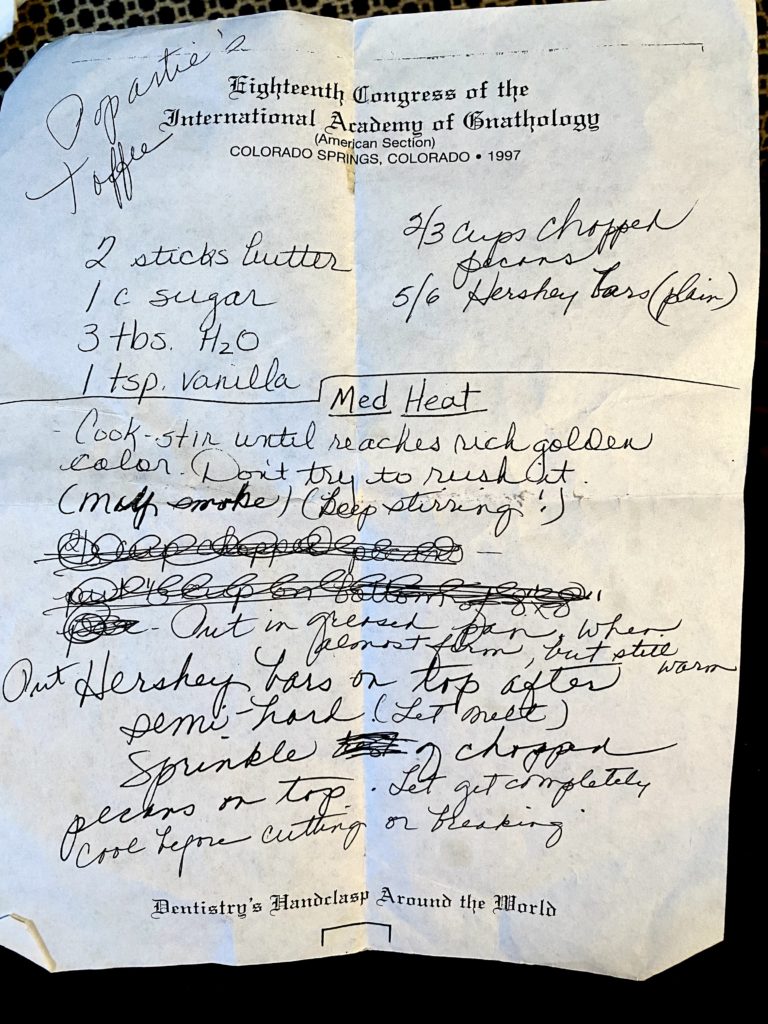 Popartie's
Toffee
Eighteenth Congress of the
International Academy of Gnathology
(American Section)
COLORADO SPRINGS, COLORADO • 1997
2 sticks butter
1 c sugar
3 tbs. H2O
1 tsp. vanilla
2/3 cups chopped
pecans
5/6 Hershey bars (plain)
Med Heat
- Cook-stir until reaches rich golden
color. Don't try to rush it.
(May smoke) (keep stirring!)
- Put in greased pan, when
almost firm, but still
warm
Put Hershey bars on top after
semi-hard (Let melt)
Sprinkle of chopped
pecans on top. Let get completely
cool before cutting or breaking.
Dentistry's Handclasp Around the World